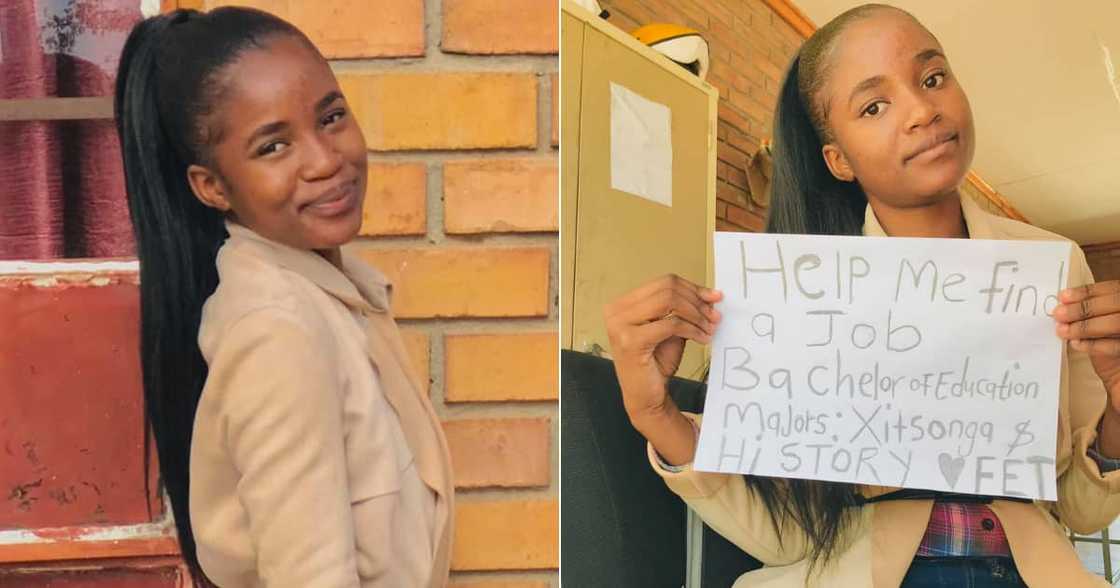 Help Me find
a Job
Bachelor of Education
Majors: Xitsonga &
HiSTORY ♥ FET